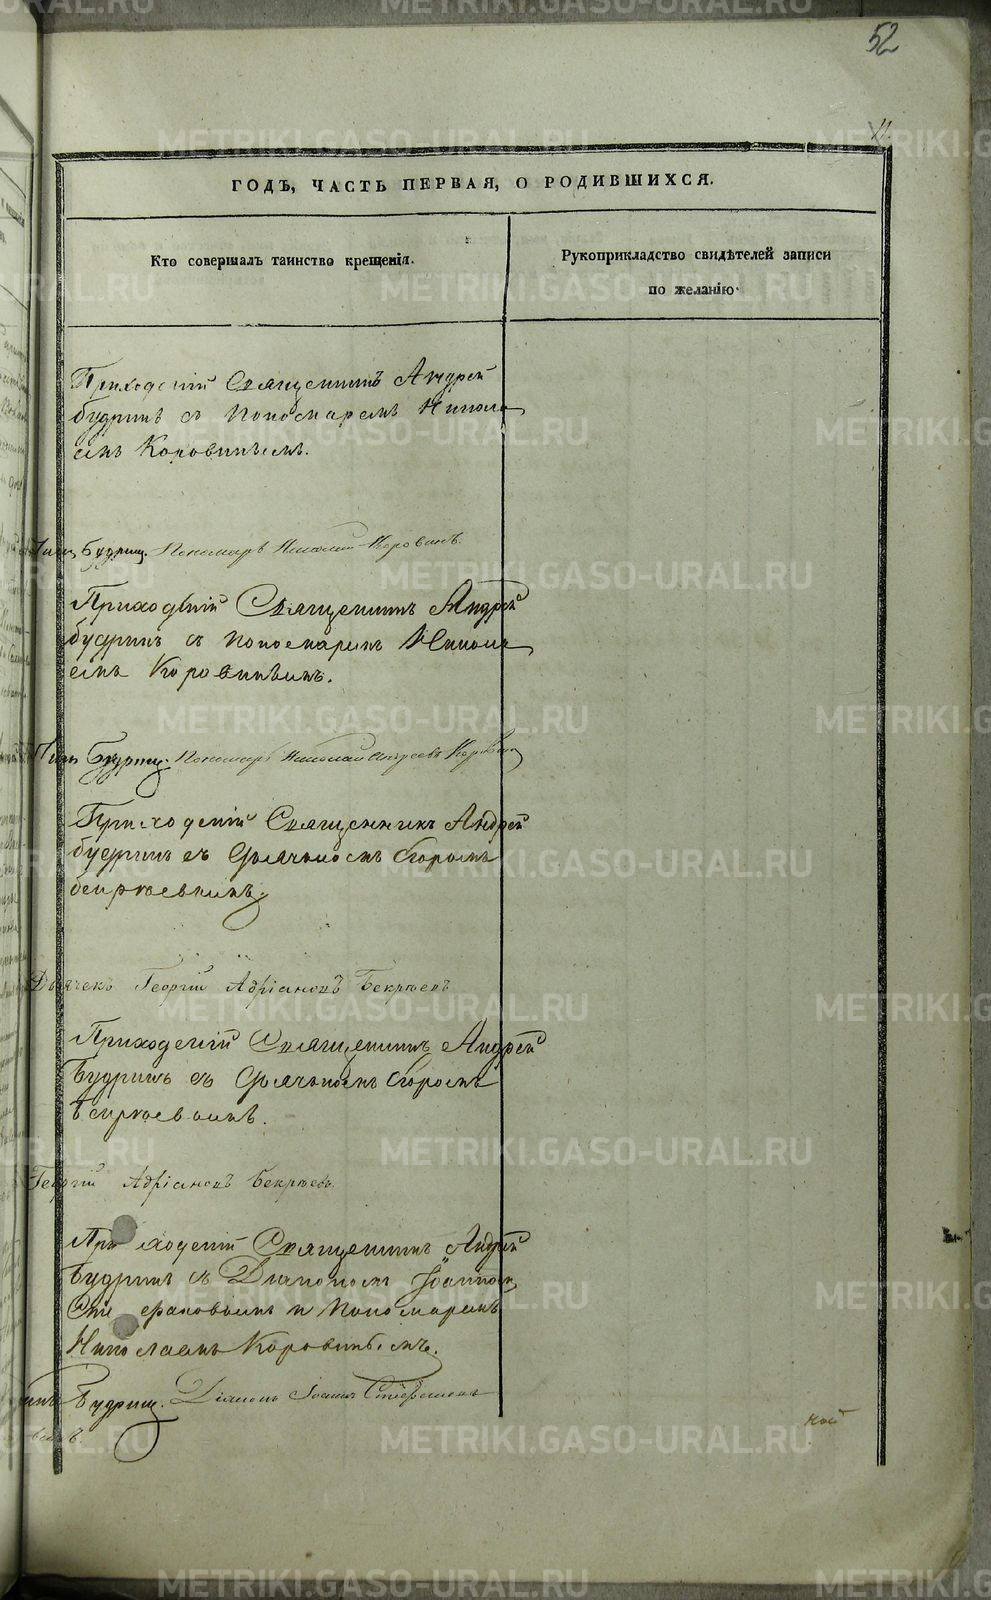 52
11.
ГОДЪ, ЧАСТЬ ПЕРВАЯ, О РОДИВШИХСЯ.
Кто совершалъ таинство крещенія.
Рукоприкладство свидѣтелей записи
по желанію
Приходскій Священникъ Андрей
Будринъ съ Пономаремъ Никола
емъ Коровинымъ.
Будринъ. Пономарь Николай Коровинъ.
Приходскій Священникъ Андрей
Будринъ съ Пономаремъ Никола
емъ Коровинымъ.
Будринъ. Пономарь Николай Андреевъ Коровин
Приходскій Священникъ Андрей
Будринъ съ Дьячкомъ Егоромъ
Бекрѣевымъ.
Дьячекъ Георгій Адріановъ Бекрѣевъ
Приходскій Священникъ Андрей
Будринъ съ Дьячкомъ Егоромъ
Бекрѣевымъ.
Георгій Адріановъ Бекрѣевъ.
Приходскій Священникъ Андрей
Будринъ съ Діакономъ Іоанномъ
Стефановымъ и Пономаремъ
Николаемъ Коровинымъ.
Будринъ. Діаконъ Іоаннъ Стефановъ
кой
METRIKI.GASO-URAL.RU